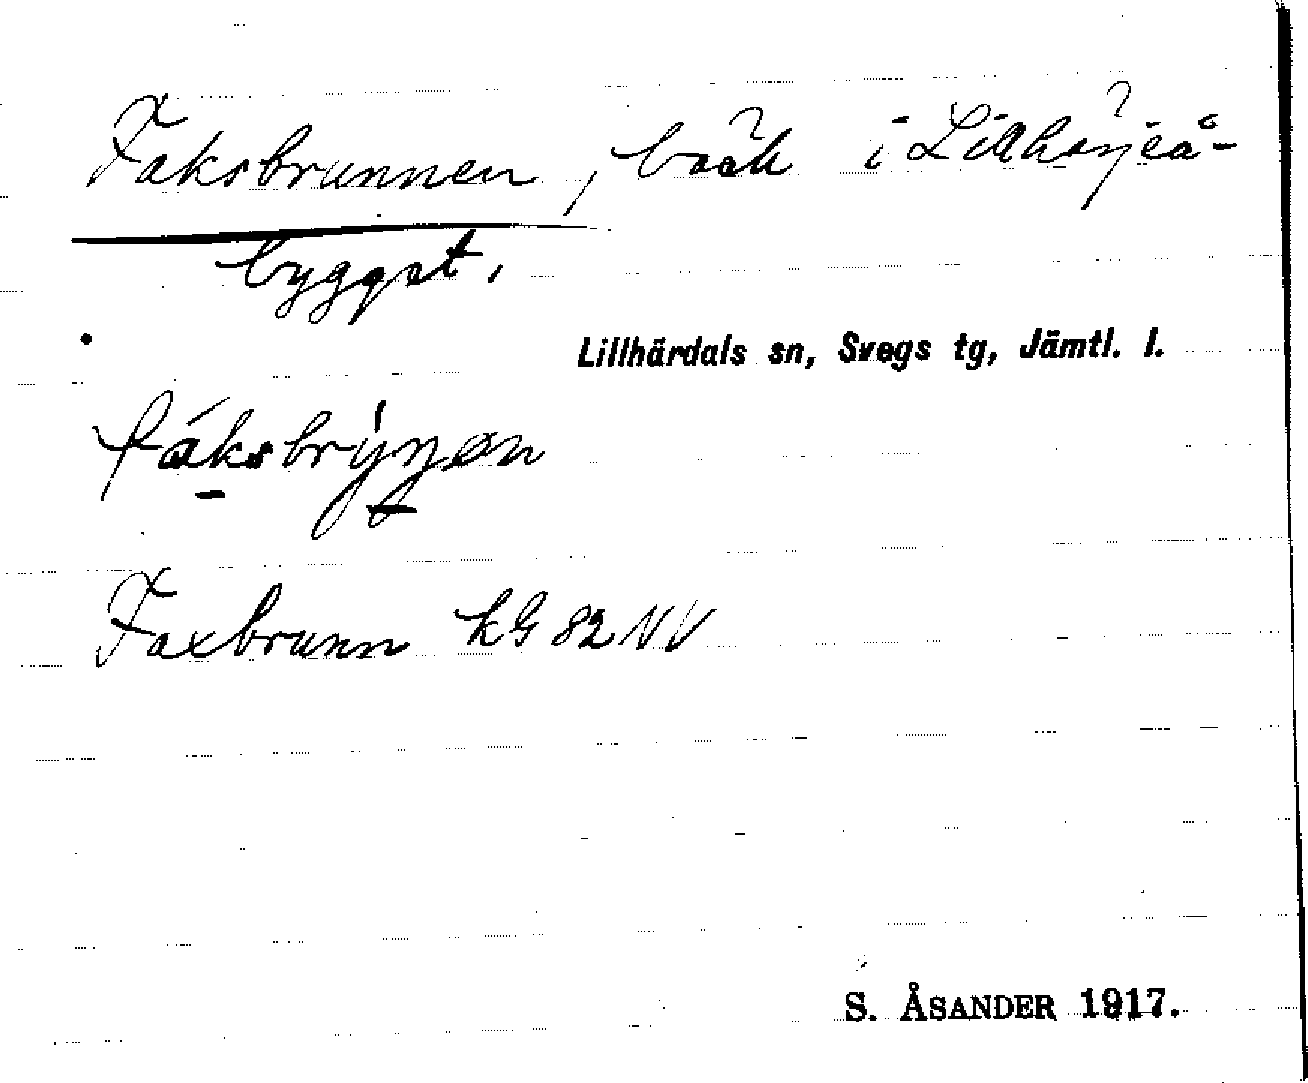 Faksbrunnen, bäck i Lillhärjeå-
byggət.
Lillhärdals sn, Svegs tg, Jämtl. l.
fáksbrýŋən
Faxbrunn kG 82 NV
S. ÅSANDER 1917.